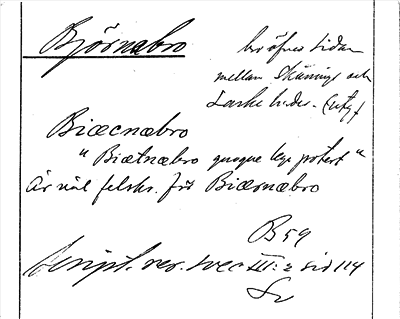 Björnabro
bro öfver Lidan
mellan Skånings och
Laske hrder.
Biæcnæbro
"Biætnæbro quoque legi potest"
är väl felskr. för Biærnæbro
B 59
Script. rer. svec III: 2 sid 114